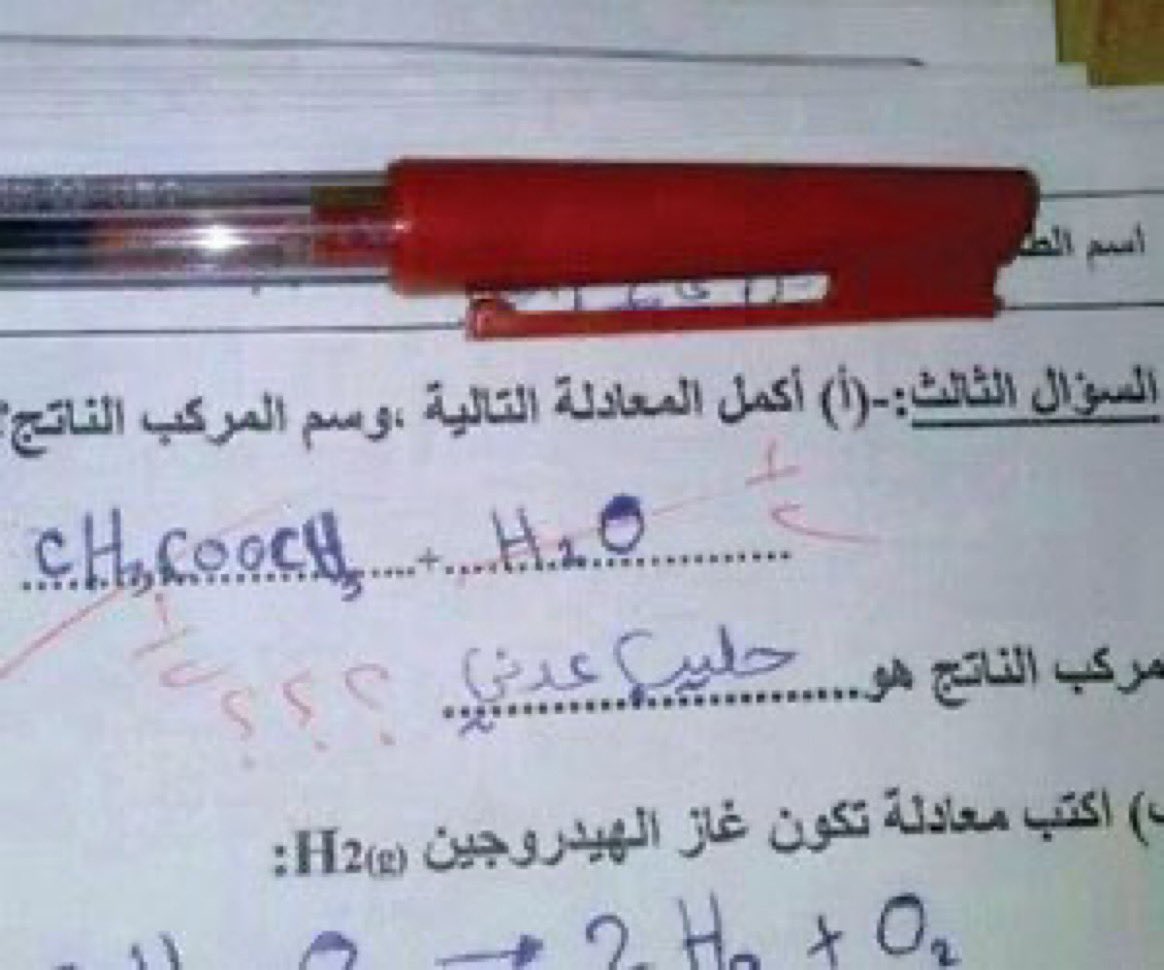 اسم
السؤال الثالث:-(أ) أكمل المعادلة التالية ،وسم المركب الناتج:
CH3COOCH3 + H2O
1/2
1/2
مركب الناتج هو حليب عدني
؟ ؟ ؟
) اكتب معادلة تكون غاز الهيدروجين H2(g):
→ 2 H2 + O2